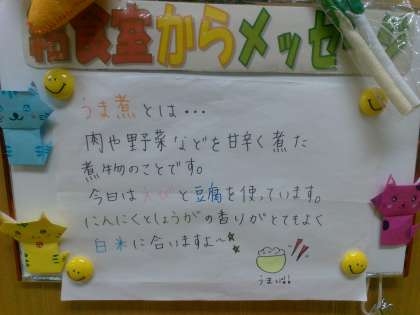 給食室からメッセージ
うま煮とは・・・
肉や野菜などを甘辛く煮た
煮物のことです。
今日はメカジと豆腐を使っています。
にんにくとしょうがの香りがとてもよく
白米に合いますよ〜
うまい!